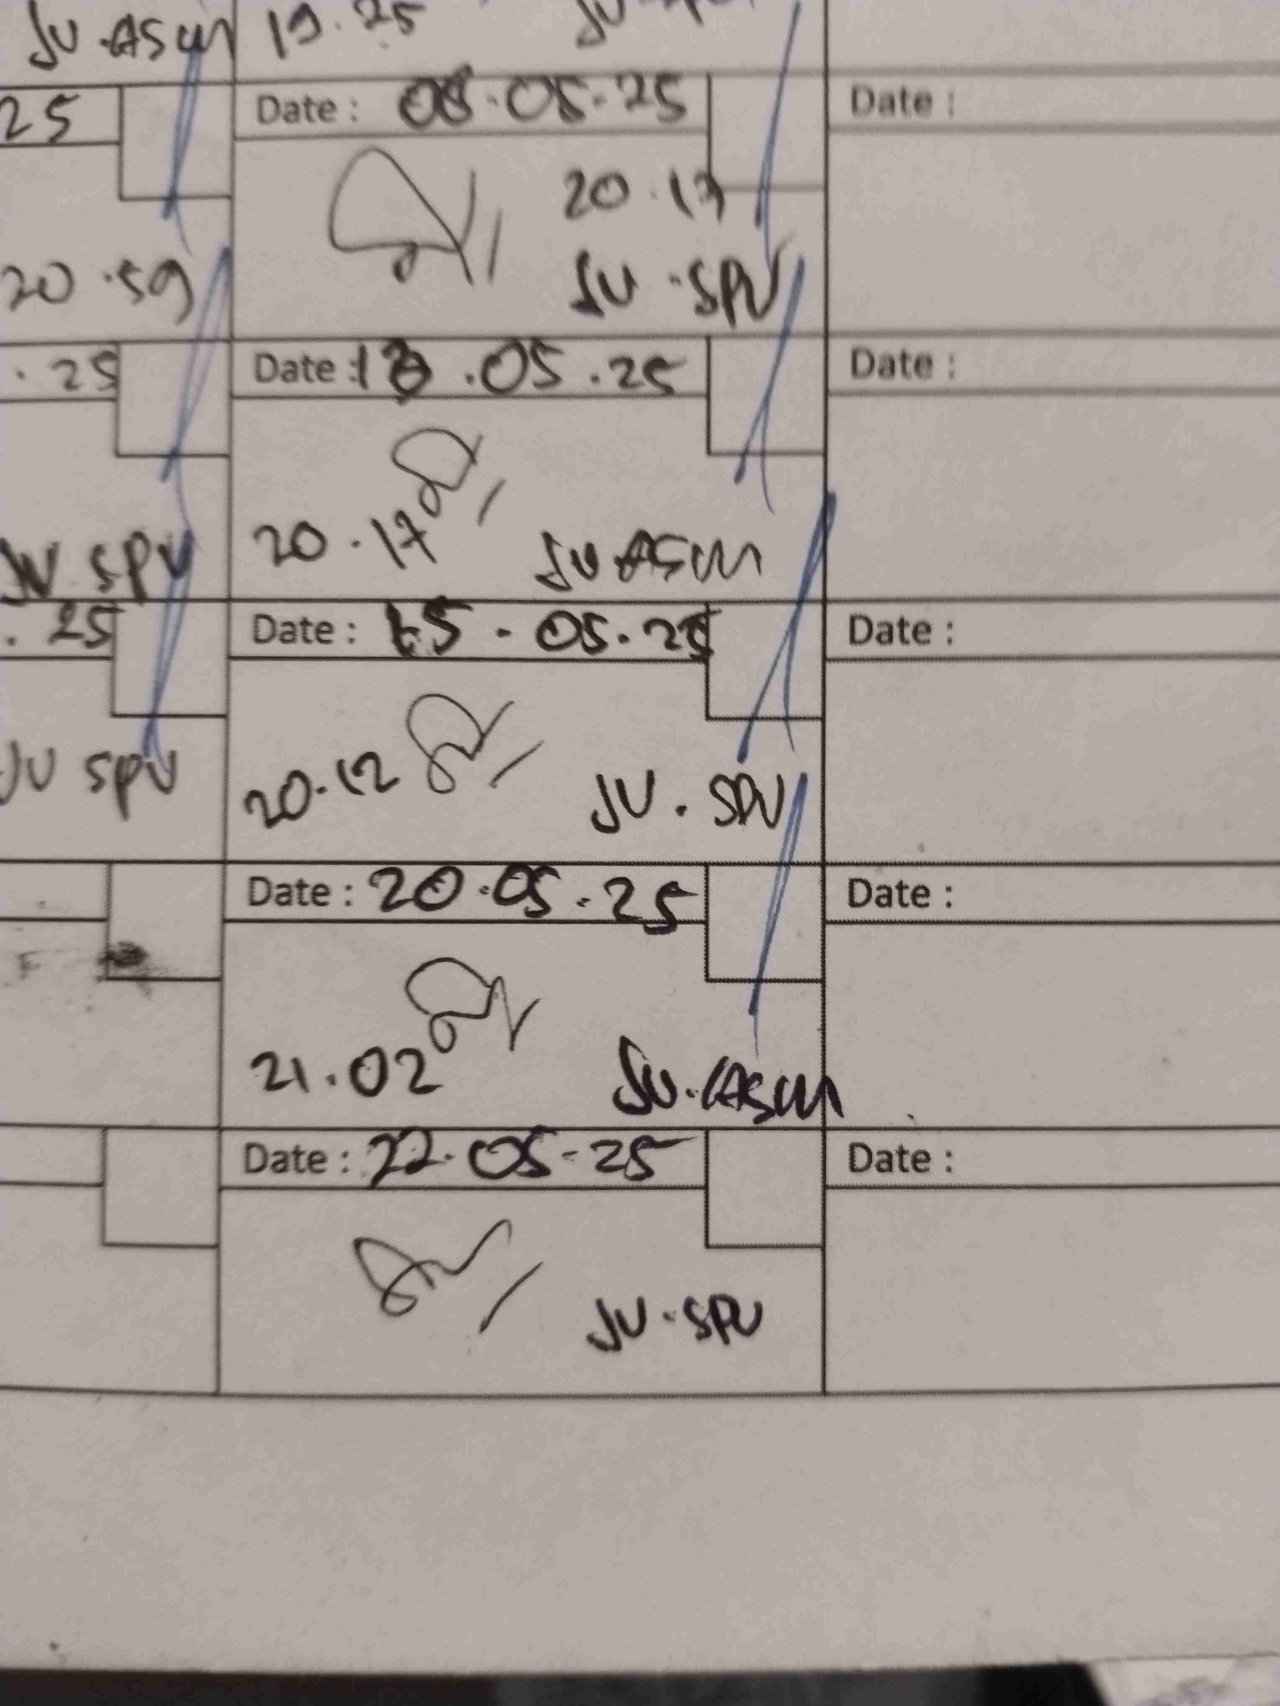 JU.ASM 19.25
25 Date : 08.05.25 Date :
20.17
20.59 JU.SPV
.25 Date : 13.05.25 Date :
20.17 JU.ASM
JU SPV
.25 Date : 15.05.25 Date :
20.12 JU.SPV
JU SPV
Date : 20.05.25 Date :
21.02 JU.ASM
Date : 22.05.25 Date :
JU.SPV